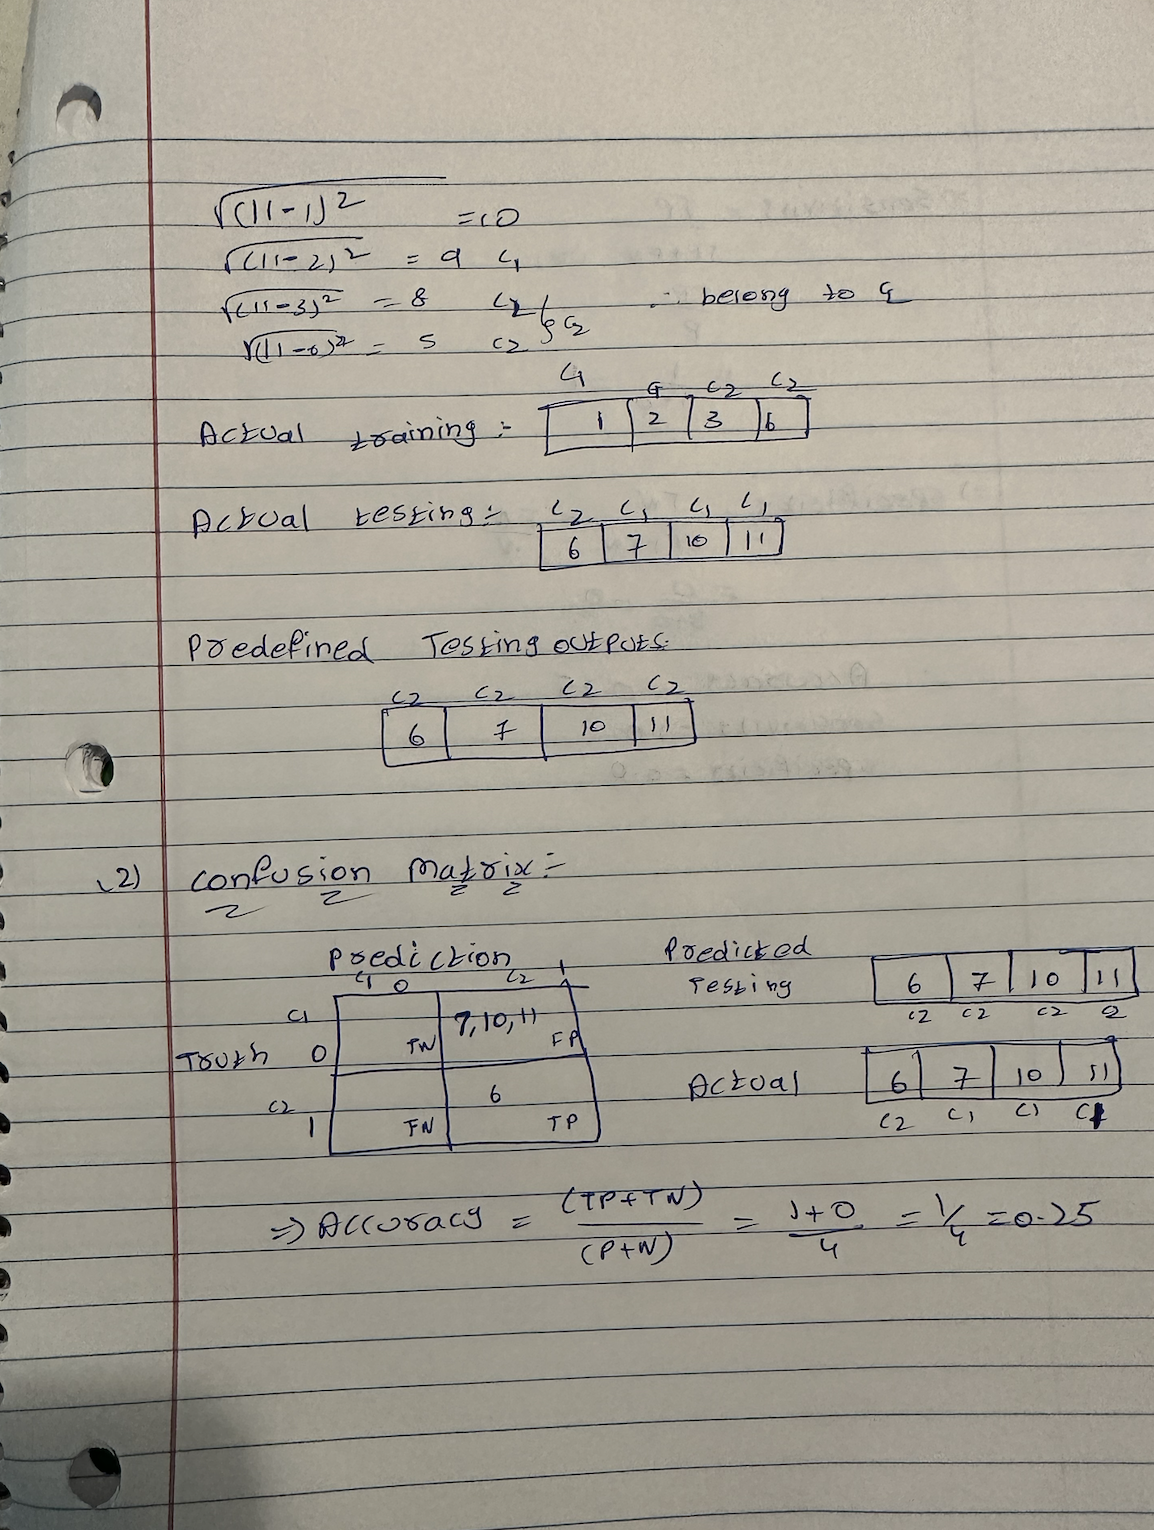 √(11-1)² =10
√(11-2)² = 9 C1
√(11-3)² = 8 C2
∴ belong to C2
√(11-6)² = 5 C2 } C2
C1 C1 C2 C2
Actual training :- 1 2 3 6
Actual testing :- C2 C1 C1 C1
6 7 10 11
Predefined Testing outputs:
C2 C2 C2 C2
6 7 10 11
2) Confusion Matrix :-
Prediction
C1 0 C2 1
C1 7,10,11
Truth 0 TN FP
C2 6
1 FN TP
Predicted
Testing 6 7 10 11
C2 C2 C2 C2
Actual 6 7 10 11
C2 C1 C1 C1
⇒ Accuracy = (TP+TN)/(P+N) = 1+0/4 = 1/4 = 0.25